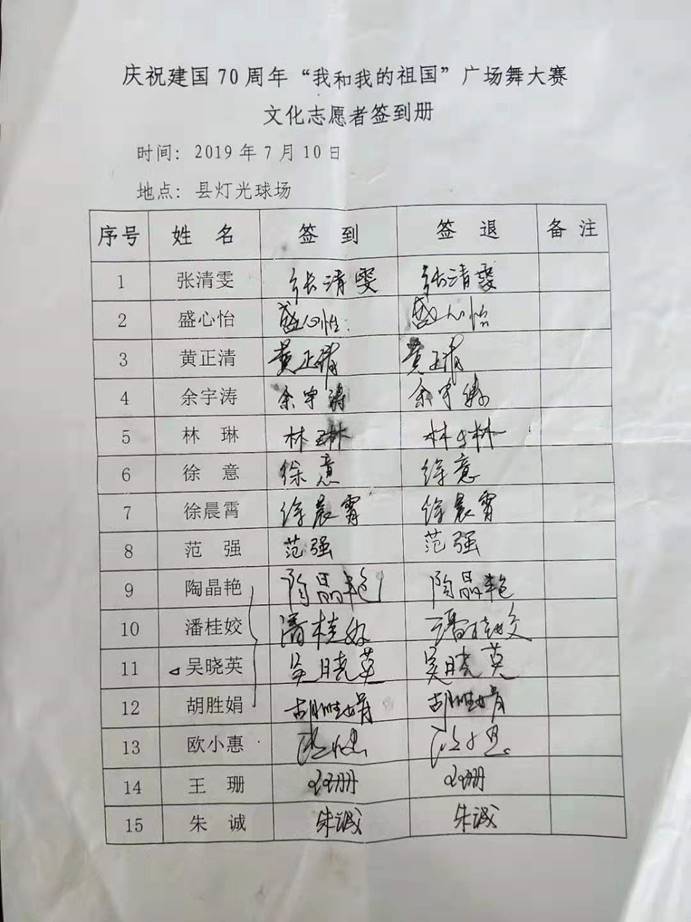 庆祝建国70周年“我和我的祖国”广场舞大赛
文化志愿者签到册
时间：2019年7月10日
地点：县灯光球场
序号 姓名 签到 签退 备注
1 张清雯 张清雯 张清雯
2 盛心怡 盛心怡 盛心怡
3 黄正清 黄正清 黄正清
4 余宇涛 余宇涛 余宇涛
5 林琳 林琳 林琳
6 徐意 徐意 徐意
7 徐晨霄 徐晨霄 徐晨霄
8 范强 范强 范强
9 陶晶艳 陶晶艳 陶晶艳
10 潘桂姣 潘桂姣 潘桂姣
11 吴晓英 吴晓英 吴晓英
12 胡胜娟 胡胜娟 胡胜娟
13 欧小惠
14 王珊 王珊 王珊
15 朱诚 朱诚 朱诚